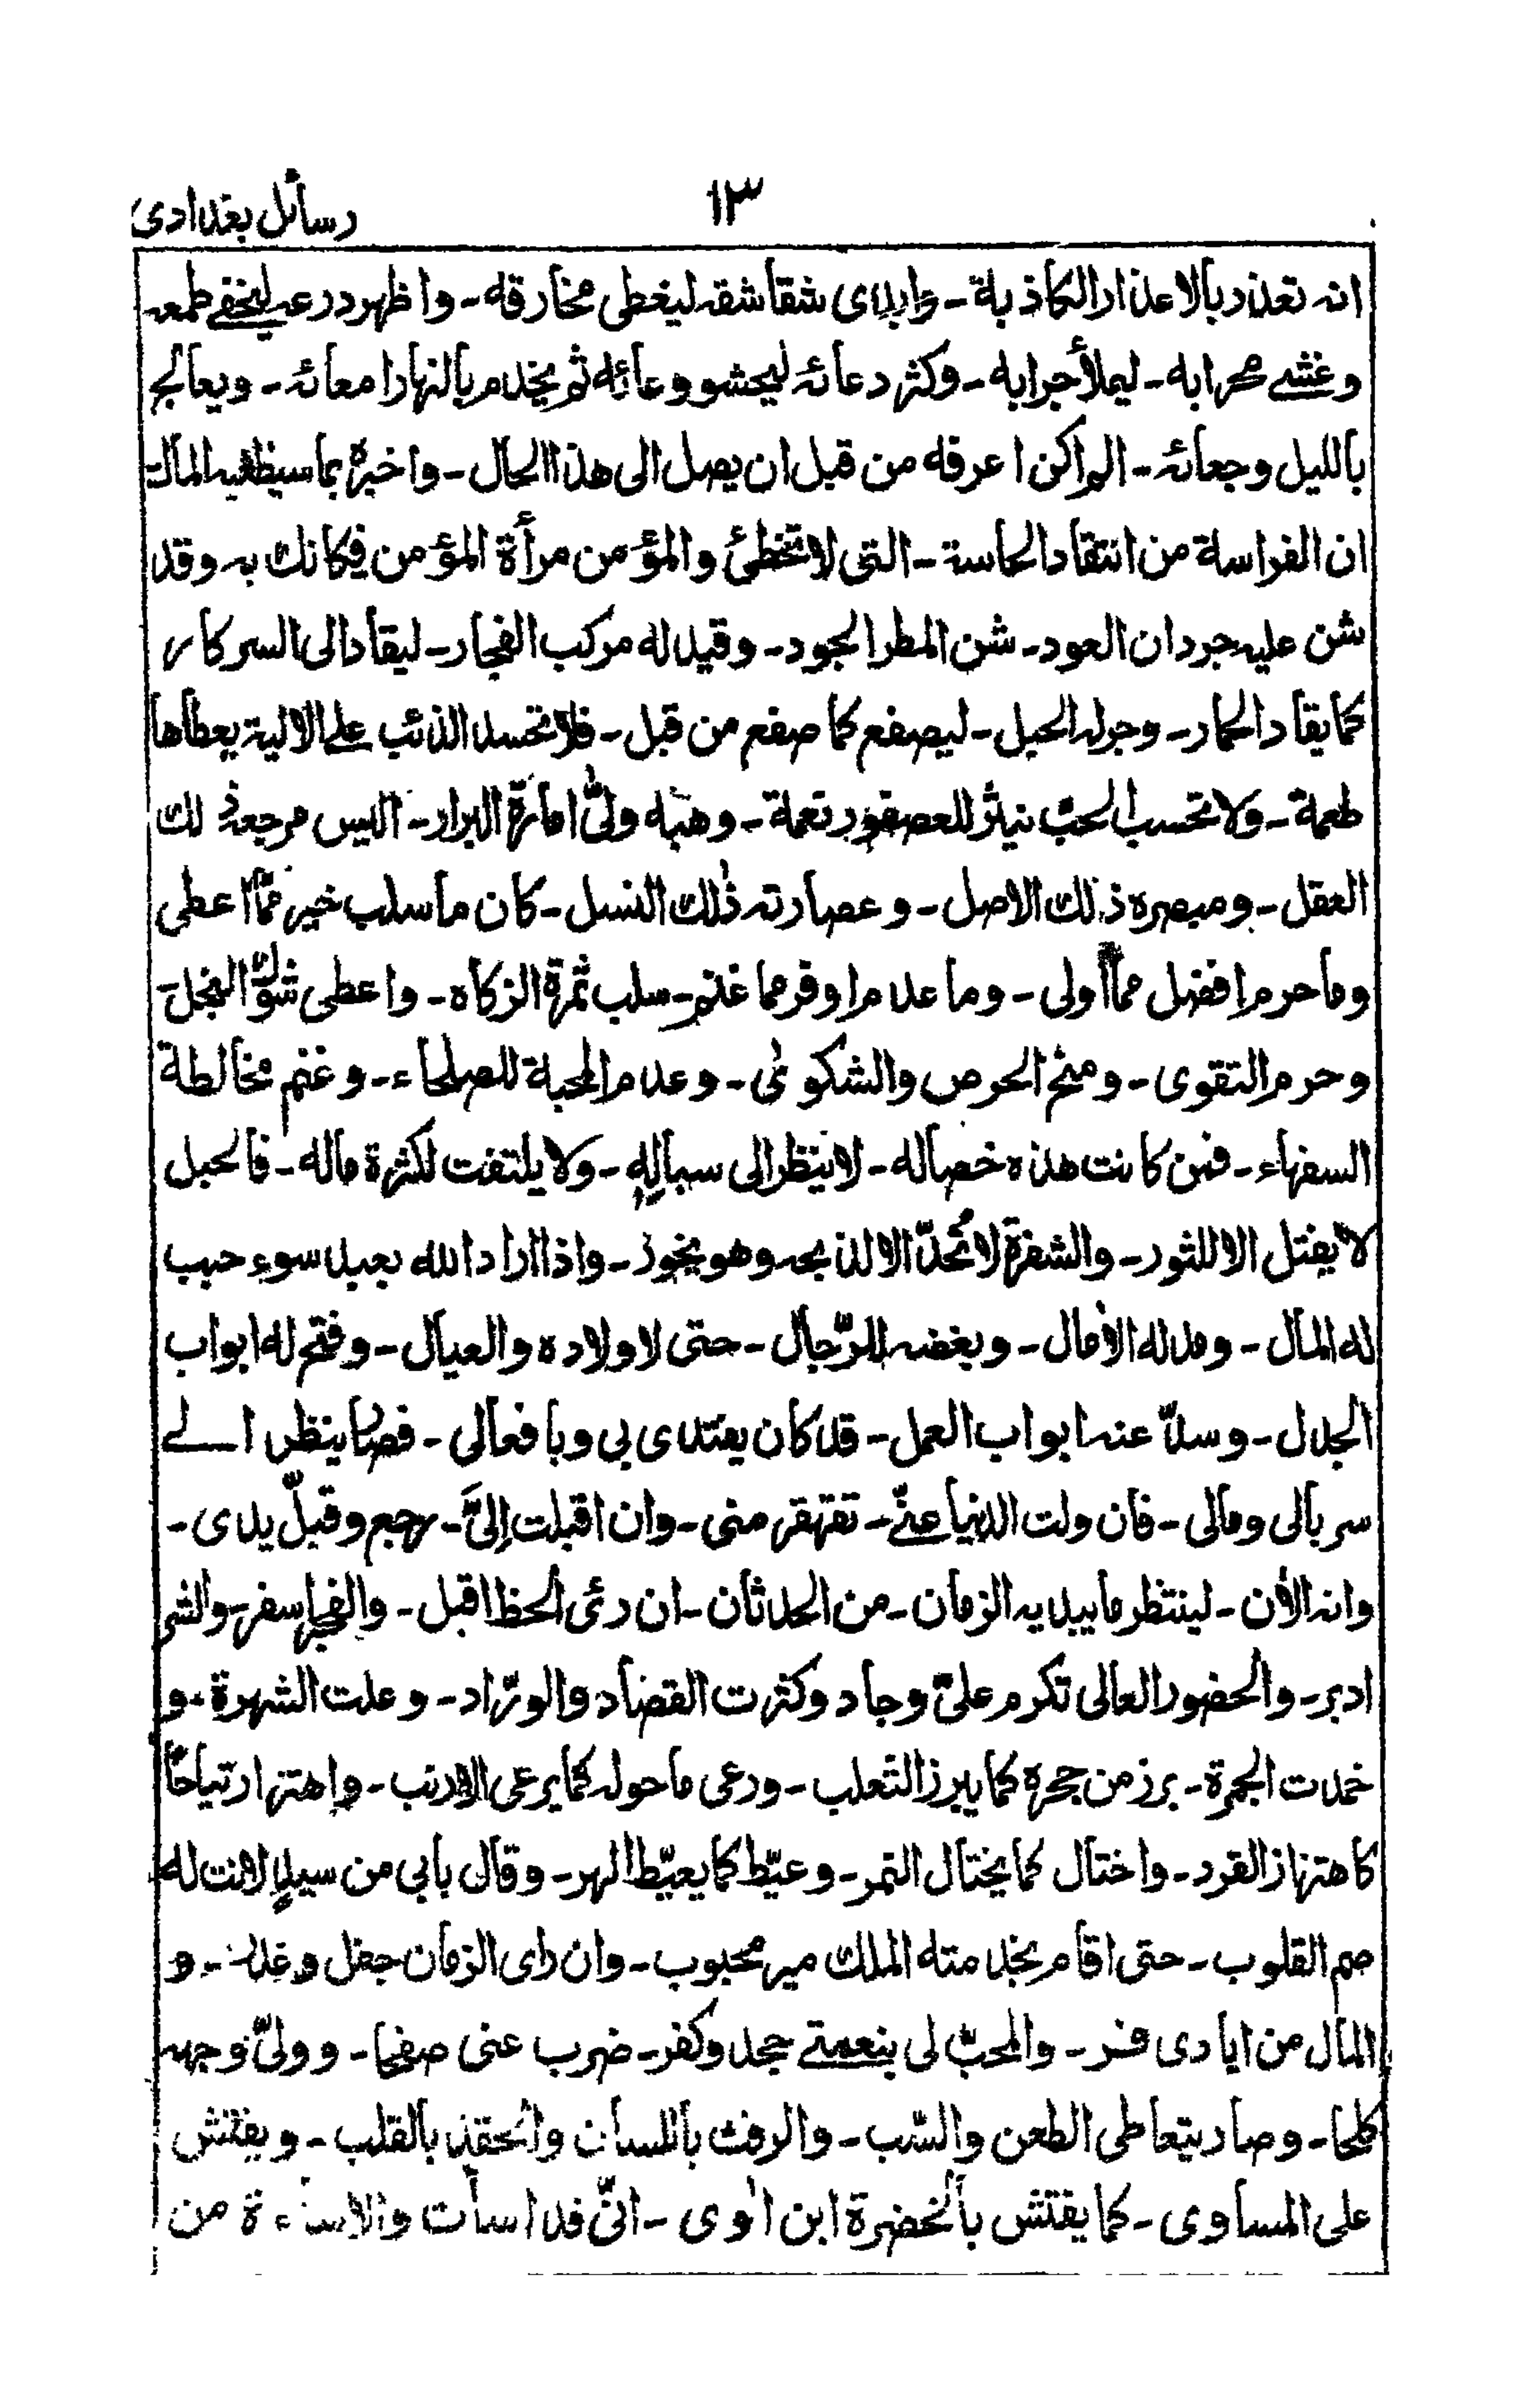 رسائل بغدادی
۱۳
انه تعذر بالاعذار الكاذبة - وابدى شقاشقه ليغطى مخارقه - واظهر درعه ليخفے طمعه
وغشے محرابه - ليملأ جرابه - وكثر دعائه ليحشو وعائه ثم يخدم بالنهار امعائه - ويعالج
بالليل وجعائه - الم اكن اعرفه من قبل ان يصل الى هذا الحال - واخبره بما سيظفيه المآل
ان الفراسة من انتقاد الحاسة - التى لا تخطئ والمؤمن مرأة المؤمن فكانك به وقد
شن عليه جردان العود - شن المطر الجود - وقيد له مركب الفجار - ليقاد الى السركار
كما يقاد الحمار - وجرله الحبل - ليصفع كما صفع من قبل - فلا تحسد الذئب على الالية يعطاها
طعمة - ولا تحسب الحبّ نيثر للعصفور نعمة - وهبه ولىّ امارة البرار - اليس مرجعه ذلك
العقل - ومبصره ذلك الاصل - وعصارته ذلك النسل - كان ما سلب خير ممّا اعطى
وما حرم افضل مما أولى - وما عدم اوفر مما غنم - سلب ثمرة الزكاه - واعطى شوك النخل
وحرم التقوى - ومنح الحرص والشكوى - وعدم المحبة للصلحاء - وغنم مخالطة
السفهاء - فمن كانت هذه خصاله - لا ينظر الى سباله - ولا يلتفت لكثرة ماله - فالحبل
لا يفتل الا للثور - والشفرة لا تُحدّ الا لذبحه وهو يخور - واذا اراد الله بعبد سوء حبب
له المال - ومد له الأمال - وبغضه للرّجال - حتى لاولاده والعيال - وفتح له ابواب
الجدال - وسدّ عنه ابواب العمل - قد كان يقتدى بى وبافعالى - فصار ينظر الے
سربالى ومالى - فان ولت الدنيا عنّے - تقهقر منى - وان اقبلت إلىَّ - رجع وقبّل يدى -
وانه الأن - لينتظر ما يبديه الزمان - من الحدثان - ان رئى الحظ اقبل - والفجر اسفر - والشر
ادبر - والحضور العالى تكرم علىّ وجاد وكثرت القصاد والورّاد - وعلت الشهرة - و
خمدت الجمرة - برز من جحره كما يبرز الثعلب - ورعى ما حوله كما يرعى الارنب - واهتز ارتياحًا
كاهتزاز القرد - واختال كما يختال النمر - وعيّط كما يعيّط الهر - وقال بابى من سيدٍ لانت له
صم القلوب - حتى اقام بخدمته الملك مير محبوب - وان راى الزمان جفل وغدر - و
المال من ايادى فر - والمحبّ لى بنعمتے جحد وكفر - ضرب عنى صفحا - وولىّ وجهه
كلحا - وصار يتعاطى الطعن والسّب - والرفث باللسان والحقد بالقلب - ويفتش
على المساوى - كما يفتش بالخضرة ابن اٰوى - انّى قد اسأت والاساءة من